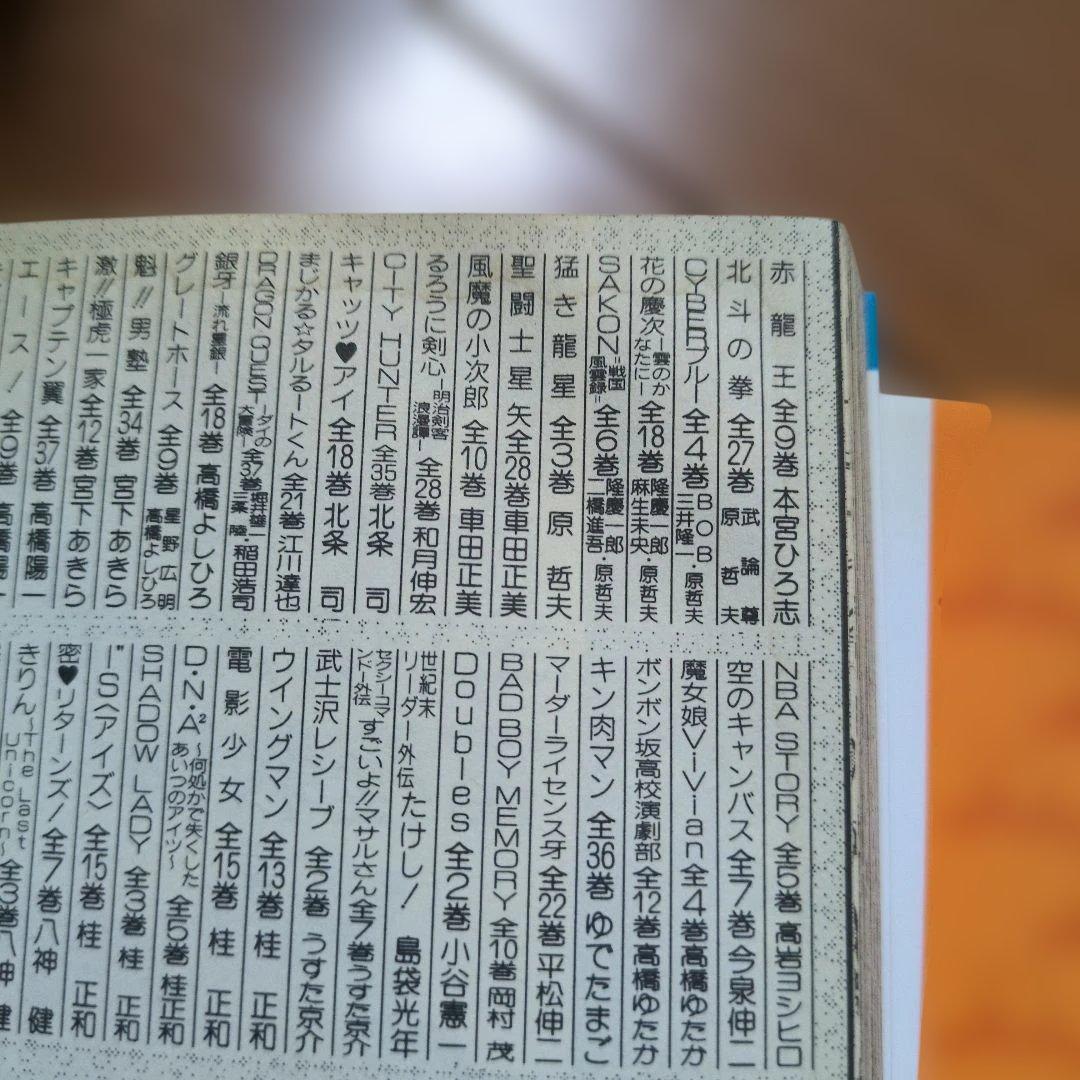 赤龍王 全9巻 本宮ひろ志
北斗の拳 全27巻 武論尊 原哲夫
CYBERブルー 全4巻 BOB 三井隆一・原哲夫
花の慶次―雲のかなたに― 全18巻 隆慶一郎 麻生未央・原哲夫
SAKON=戦国風雲録= 全6巻 隆慶一郎 二橋進吾・原哲夫
猛き龍星 全3巻 原哲夫
聖闘士星矢 全28巻 車田正美
風魔の小次郎 全10巻 車田正美
るろうに剣心―明治剣客浪漫譚― 全28巻 和月伸宏
CITY HUNTER 全35巻 北条司
キャッツ♥アイ 全18巻 北条司
まじかる☆タルるートくん 全21巻 江川達也
DRAGON QUEST―ダイの大冒険― 全37巻 堀井雄二 三条陸 稲田浩司
銀牙―流れ星銀― 全18巻 高橋よしひろ
グレートホース 全9巻 星野広明 高橋よしひろ
魁!!男塾 全34巻 宮下あきら
激!!極虎一家 全12巻 宮下あきら
キャプテン翼 全37巻 高橋陽一
エース! 全9巻 高橋陽一
NBA STORY 全5巻 高岩ヨシヒロ
空のキャンバス 全7巻 今泉伸二
魔女娘ViVian 全4巻 高橋ゆたか
ボンボン坂高校演劇部 全12巻 高橋ゆたか
キン肉マン 全36巻 ゆでたまご
マーダーライセンス牙 全22巻 平松伸二
BAD BOY MEMORY 全10巻 岡村茂
Doubles 全2巻 小谷憲一
世紀末リーダー外伝たけし! 島袋光年
セクシーコマンドー外伝 すごいよ!!マサルさん 全7巻 うすた京介
武士沢レシーブ 全2巻 うすた京介
ウイングマン 全13巻 桂正和
電影少女 全15巻 桂正和
D・N・A²～何処かで失くしたあいつのアイツ～ 全5巻 桂正和
SHADOW LADY 全3巻 桂正和
I"S〈アイズ〉 全15巻 桂正和
密♥リターンズ! 全7巻 八神健
きりん～The Last Unicorn～ 全3巻 八神健